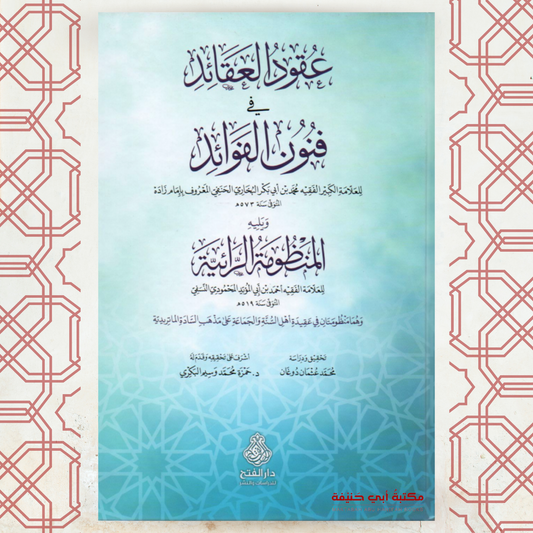 عُقُودُ العَقَائِدِ
في
فُنُونِ الفَوَائِدِ
للعلامة الكبير الفقيه محمد بن أبي بكر البخاري الحنفي المعروف بإمام زاده
المتوفى سنة ٥٧٣ هـ
ويليه
المنظومة الرائية
للعلامة الفقيه أحمد بن أبي المؤيد المحمودي النسفي
المتوفى سنة ٥١٩ هـ
وهما منظومتان في عقيدة أهل السنة والجماعة على مذهب السادة الماتريدية
تحقيق ودراسة
محمد عثمان دوغان
أشرف على تحقيقه وقدم له
د. حمزة محمد وسيم البكري
دار الفتح
للدراسات والنشر
مكتبة أبي حنيفة